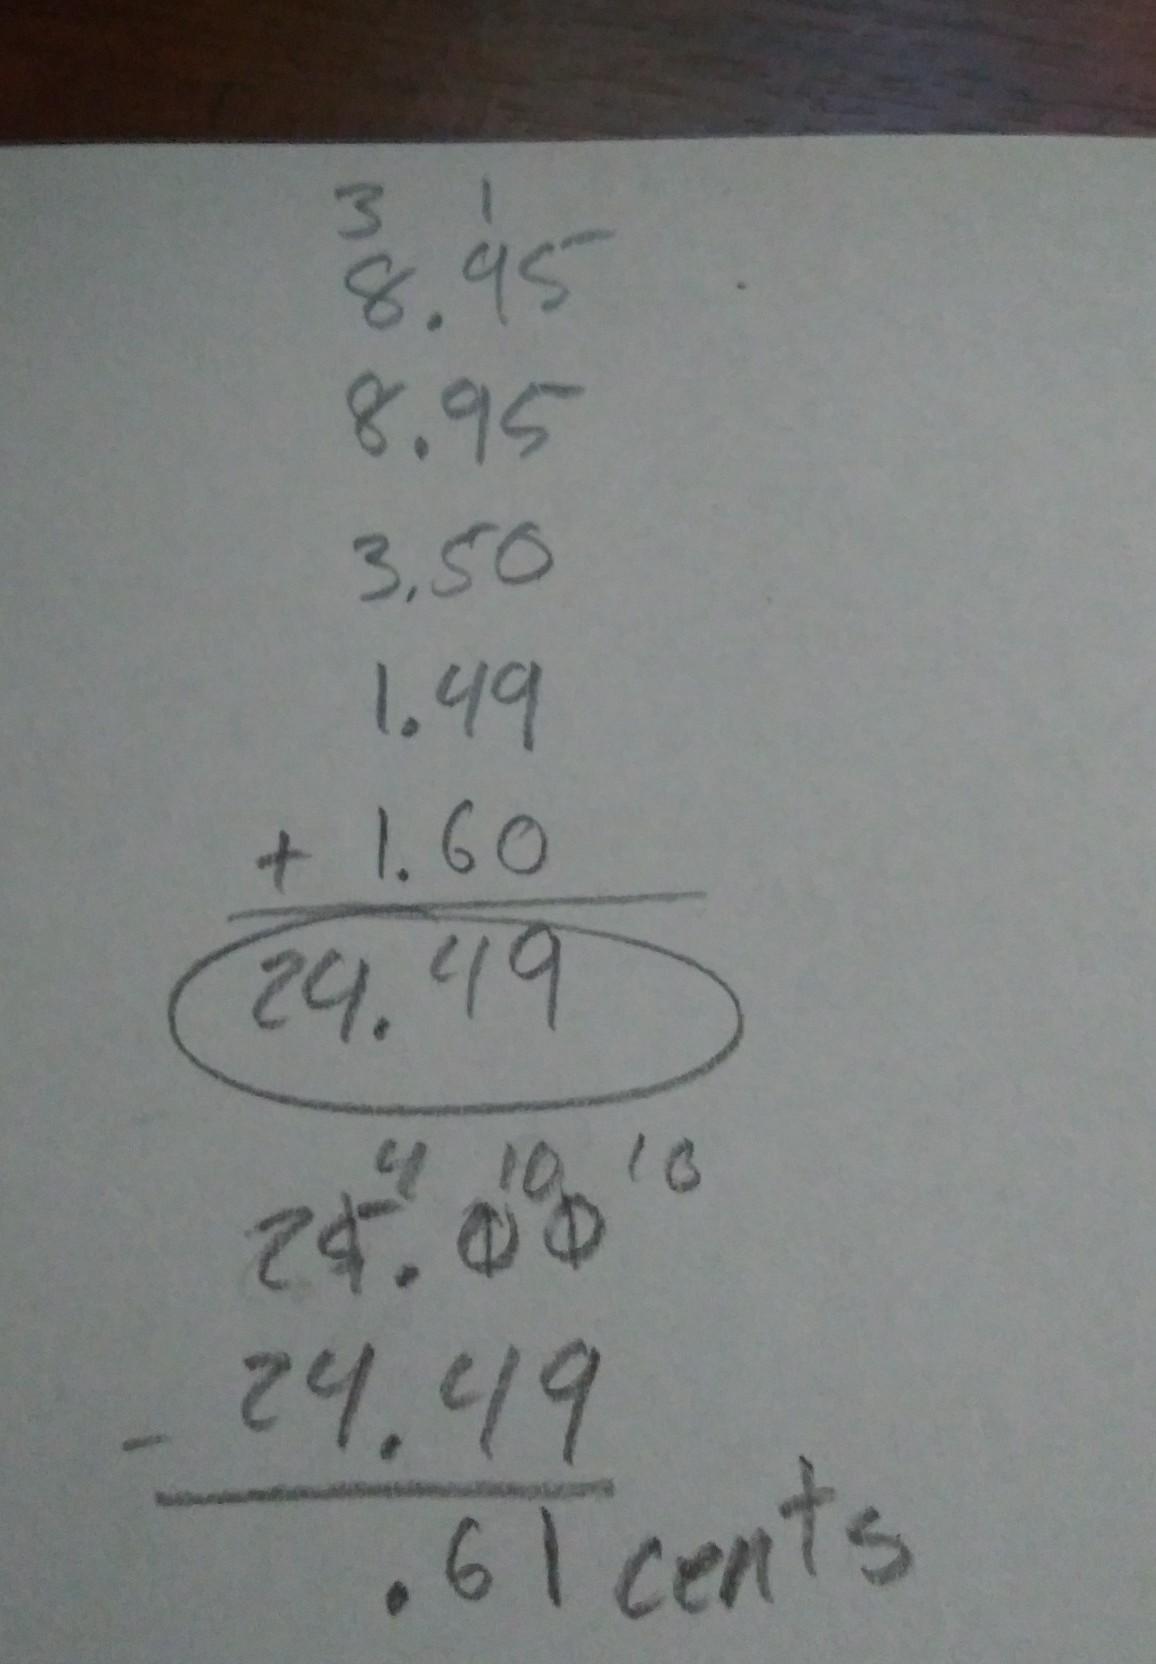 3 1
8.95
8.95
3.50
1.49
+ 1.60
24.49
4 10 10
25.00
24.49
-
.61 cents